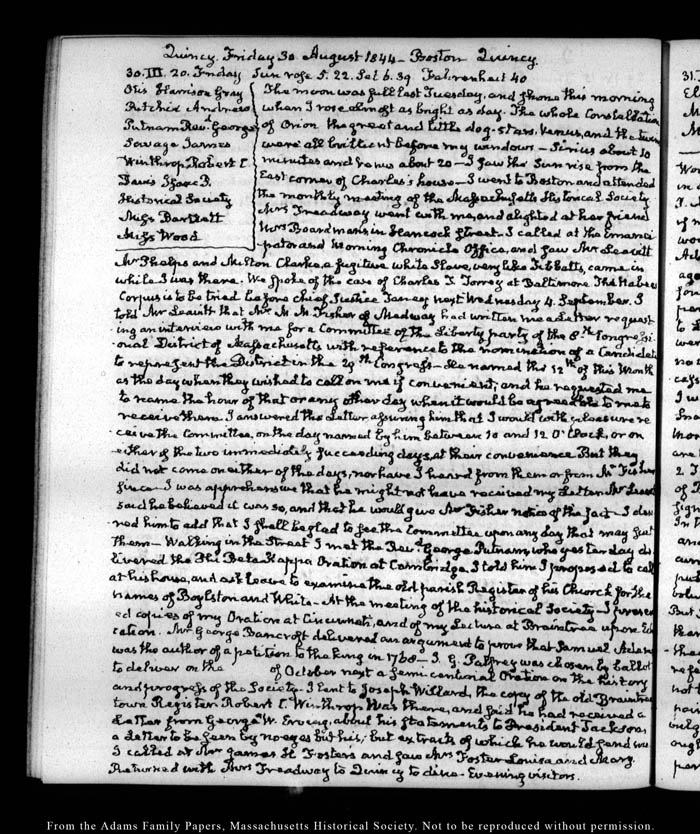 Quincy. Friday 30 August 1844 – Boston Quincy.
30. III. 20. Friday Sun rose 5. 22. Set 6. 39 Fahrenheit 40
Otis Harrison Gray
Ritchie Andrew
Putnam Revd. George
Savage James
Winthrop Robert C
Davis Isaac P.
Historical Society
Miss Bartlett
Miss Wood
The moon was full last Tuesday, and shone this morning
when I rose almost as bright as day. The whole Constellation
of Orion the great and little dog-stars, Venus, and the twins
were all brilliant before my windows – Sirius about 10
minutes and Venus about 20 – I saw the Sun rise from the
East corner of Charles's house – I went to Boston and attended
the monthly meeting of the Massachusetts Historical Society
Mrs Treadway went with me, and alighted at her friend
Mrs Boardman's in Hancock Street. I called at the Emanci-
pator and Morning Chronicle Office, and saw Mr Leavitt
Mr Phelps and Milton Clarke, a fugitive white Slave, very like Tibbatts, came in
while I was there. We spoke of the case of Charles T. Torrey at Baltimore. The Habeas
Corpus is to be tried before Chief Justice Taney next Wednesday 4. September. I
told Mr Leavitt that Mr M. M. Fisher of Medway had written me a Letter request-
ing an interview with me for a Committee of the Liberty party of the 8th. Congressi-
onal District of Massachusetts with reference to the nomination of a Candidate
to represent the District in the 29th Congress – He named the 12th of this Month
as the day when they wished to call on me if convenient, and he requested me
to name the hour of that or any other day when it would be agreeable to me to
receive them. I answered the Letter, assuring him that I would with pleasure re-
ceive the Committee, on the day named by him between 10 and 12 O'Clock, or on
either of the two immediately succeeding days, at their convenience. But they
did not come on either of the days, nor have I heard from them or from Mr Fisher
since – I was apprehensive that he might not have received my Letter. Mr Leavitt
said he believed it was so, and that he would give Mr Fisher notice of the fact – I desi-
red him to add that I shall be glad to see the Committee upon any day that may suit
them – Walking in the Street I met the Revd. George Putnam, who yesterday de-
livered the Phi Beta Kappa Oration at Cambridge. I told him I proposed to call
at his house, and ask leave to examine the old parish Register of his Church for the
names of Boylston and White – At the meeting of the historical Society – I present-
ed copies of my Oration at Cincinnati, and of my Lecture at Braintree upon Edu-
cation. Mr George Bancroft delivered an argument to prove that Samuel Adams
was the author of a petition to the king in 1768 – J. G. Palfrey was chosen by ballot
to deliver on the of October next a Semi-centennial Oration on the history
and progress of the Society – I lent to Joseph Willard, the copy of the old Braintree
town Register. Robert C. Winthrop was there, and said he had received a
Letter from George W. Erving, about his statements to President Jackson,
a Letter to be seen by no eyes but his; but extracts of which he would send me
I called at Mr James H Foster's and saw Mrs Foster Louisa and Mary.
Returned with Mrs Treadway to Quincy to dine – Evening visitors.
From the Adams Family Papers, Massachusetts Historical Society. Not to be reproduced without permission.